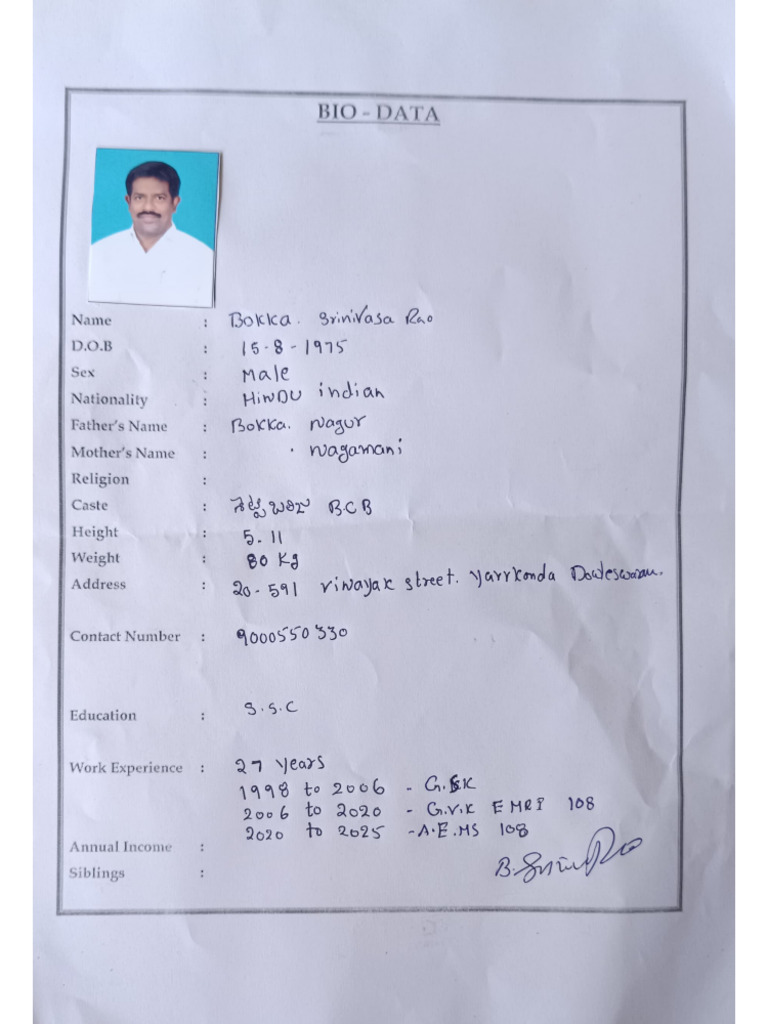 BIO - DATA
Name : Bokka. Srinivasa Rao
D.O.B : 15-8-1975
Sex : Male
Nationality : HINDU indian
Father's Name : Bokka. Nagur
Mother's Name : . Nagamani
Religion :
Caste : శెట్టిబలిజ BCB
Height : 5.11
Weight : 80 Kg
Address : 20-591 vinayak street. yarrkonda Dowleswaram.
Contact Number : 9000550330
Education : S.S.C
Work Experience : 27 years
1998 to 2006 - G.S.K
2006 to 2020 - G.V.K EMRI 108
2020 to 2025 - A.E.MS 108
Annual Income :
B. Srini Rao
Siblings :